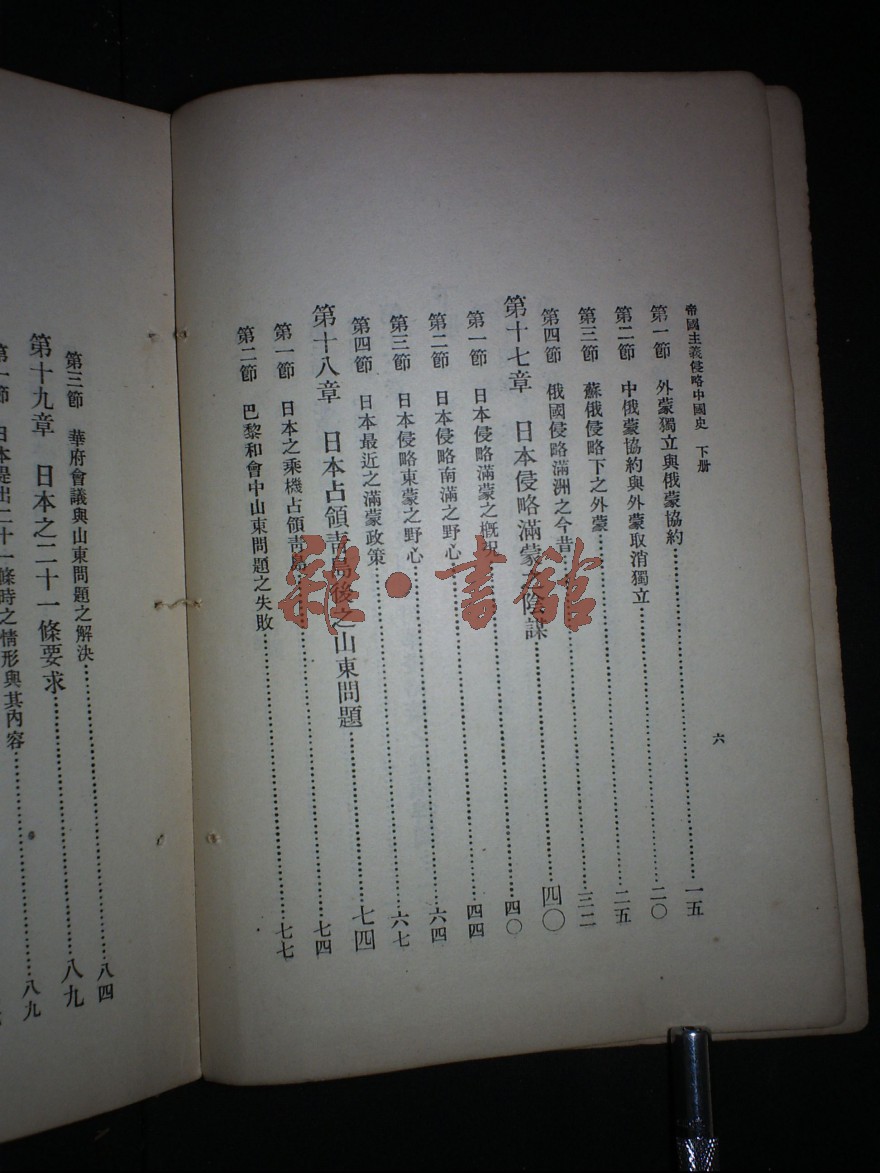 帝國主義侵略中國史 下册
六
第一節 外蒙獨立與俄蒙協約……一五
第二節 中俄蒙協約與外蒙取消獨立……二〇
第三節 蘇俄侵略下之外蒙……二五
第四節 俄國侵略滿洲之今昔……三二
第十七章 日本侵略滿蒙之陰謀……四〇
第一節 日本侵略滿蒙之概況……四〇
第二節 日本侵略南滿之野心……四四
第三節 日本侵略東蒙之野心……六四
第四節 日本最近之滿蒙政策……六七
第十八章 日本占領青島後之山東問題……七四
第一節 日本之乘機占領青島……七四
第二節 巴黎和會中山東問題之失敗……七七
第三節 華府會議與山東問題之解決……八四
第十九章 日本之二十一條要求……八九
第一節 日本提出二十一條時之情形與其內容……八九
雜·書館